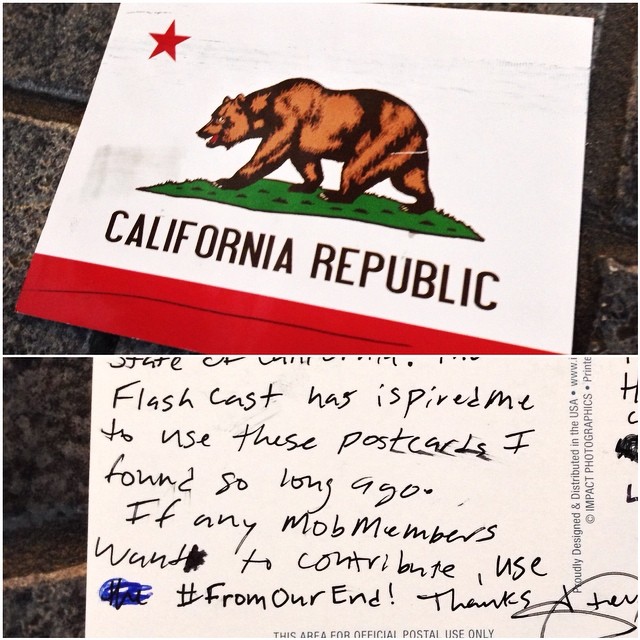 CALIFORNIA REPUBLIC
State of California. The
Flash Cast has ispired me
to use these postcards I
found so long ago.
If any MobMembers
Want to contribute, use
#FromOurEnd! Thanks
THIS AREA FOR OFFICIAL POSTAL USE ONLY
Proudly Designed & Distributed in the USA • www.i
© IMPACT PHOTOGRAPHICS • Printe